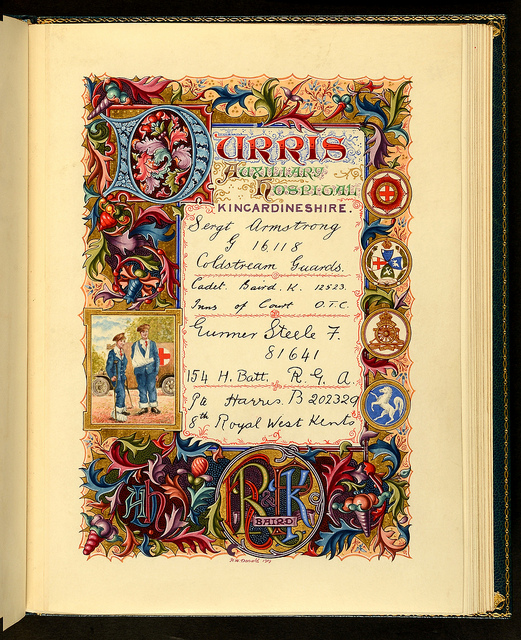 DURRIS
AUXILIARY
HOSPITAL
KINCARDINESHIRE.
Sergt Armstrong
G 16118
Coldstream Guards.
Cadet. Baird. K. 12523.
Inns of Court O.T.C.
Gunner Steele F.
81641
154 H. Batt. R. G. A.
Pte Harris. B 202329
8th Royal West Kents
Ah
R & K
BAIRD